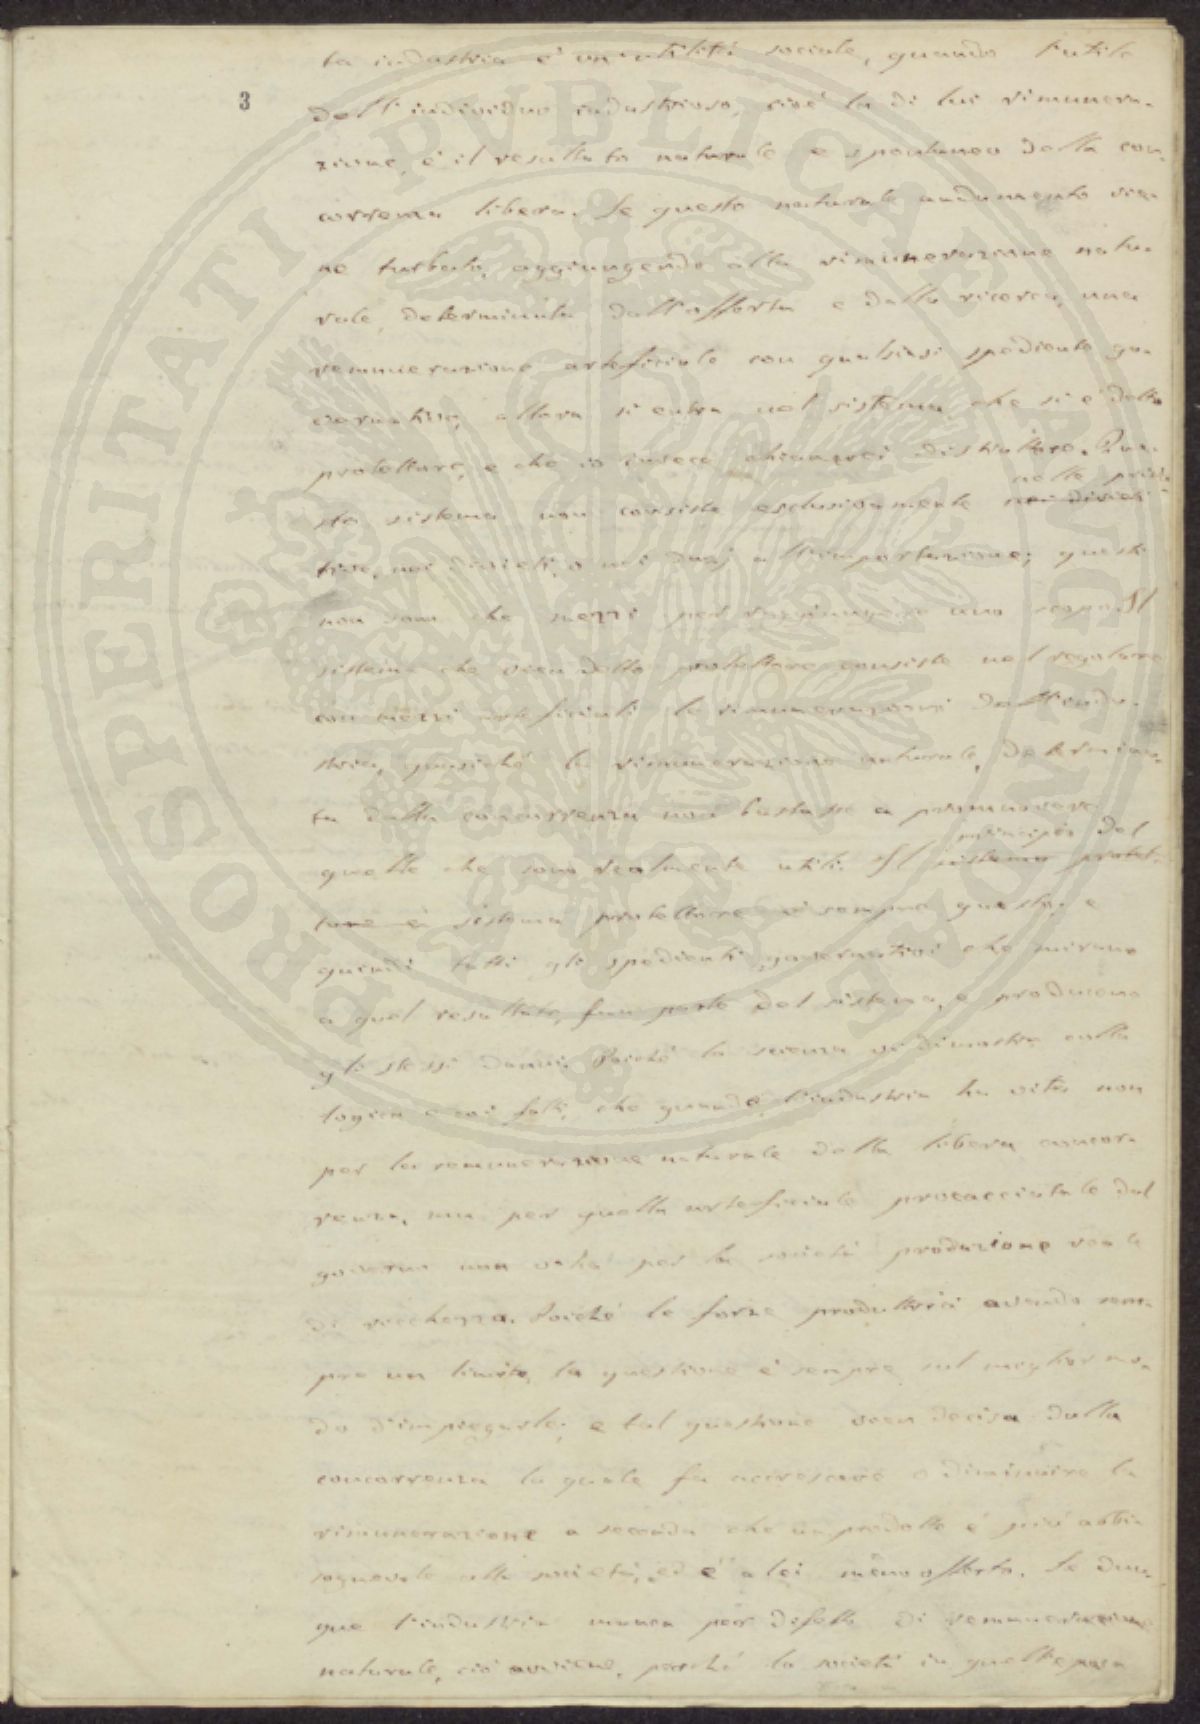 3
ta industria è un'utilità sociale, quando l'utile
dell'individuo industrioso, cioè la di lui rimunera-
zione, è il resultato naturale e spontaneo della con-
correnza libera. Se questo naturale andamento vie-
ne turbato, aggiungendo alla rimunerazione natu-
rale, determinata dall'offerta e dalla ricerca, una
remunerazione arteficiale con qualsiasi spediente go-
vernativo, allora si entra nel sistema che si è detto
protettore, e che io invece chiamerei distruttore. Que-
nelle priva-
sto sistema non consiste esclusivamente nei divieti
tive, nei divieti, o nei dazj all'importazione; questi
non sono che mezzi per raggiungere uno scopo. Il
sistema che vien detto protettore consiste nel regolare
con mezzi arteficiali le rimunerazioni dell'indu-
stria, quasiché la rimunerazione naturale, determina-
ta dalla concorrenza non bastasse a promuovere
principio del
quelle che sono realmente utili. Il sistema protet-
tore è sistema protettore è sempre questo; e
quindi tutti gli spedienti governativi che mirano
a quel resultato, fan parte del sistema, e producono
gli stessi danni. Poiché la scienza vi dimostra colla
logica e coi fatti, che quando l'industria ha vita non
per la remunerazione naturale della libera concor-
renza, ma per quella arteficiale procacciatale dal
governo non v'ha per la società produzione reale
di ricchezza. Poiché le forze produttrici avendo sem-
pre un limite, la questione è sempre sul miglior mo-
do d'impiegarle; e tal questione vien decisa dalla
concorrenza la quale fa accrescere o diminuire la
rimunerazione a seconda che un prodotto è più abbi-
sognevole alla società, ed è a lei meno offerto. Se dun-
que l'industria manca per difetto di remunerazione
naturale, ciò avviene, perché la società in quelle